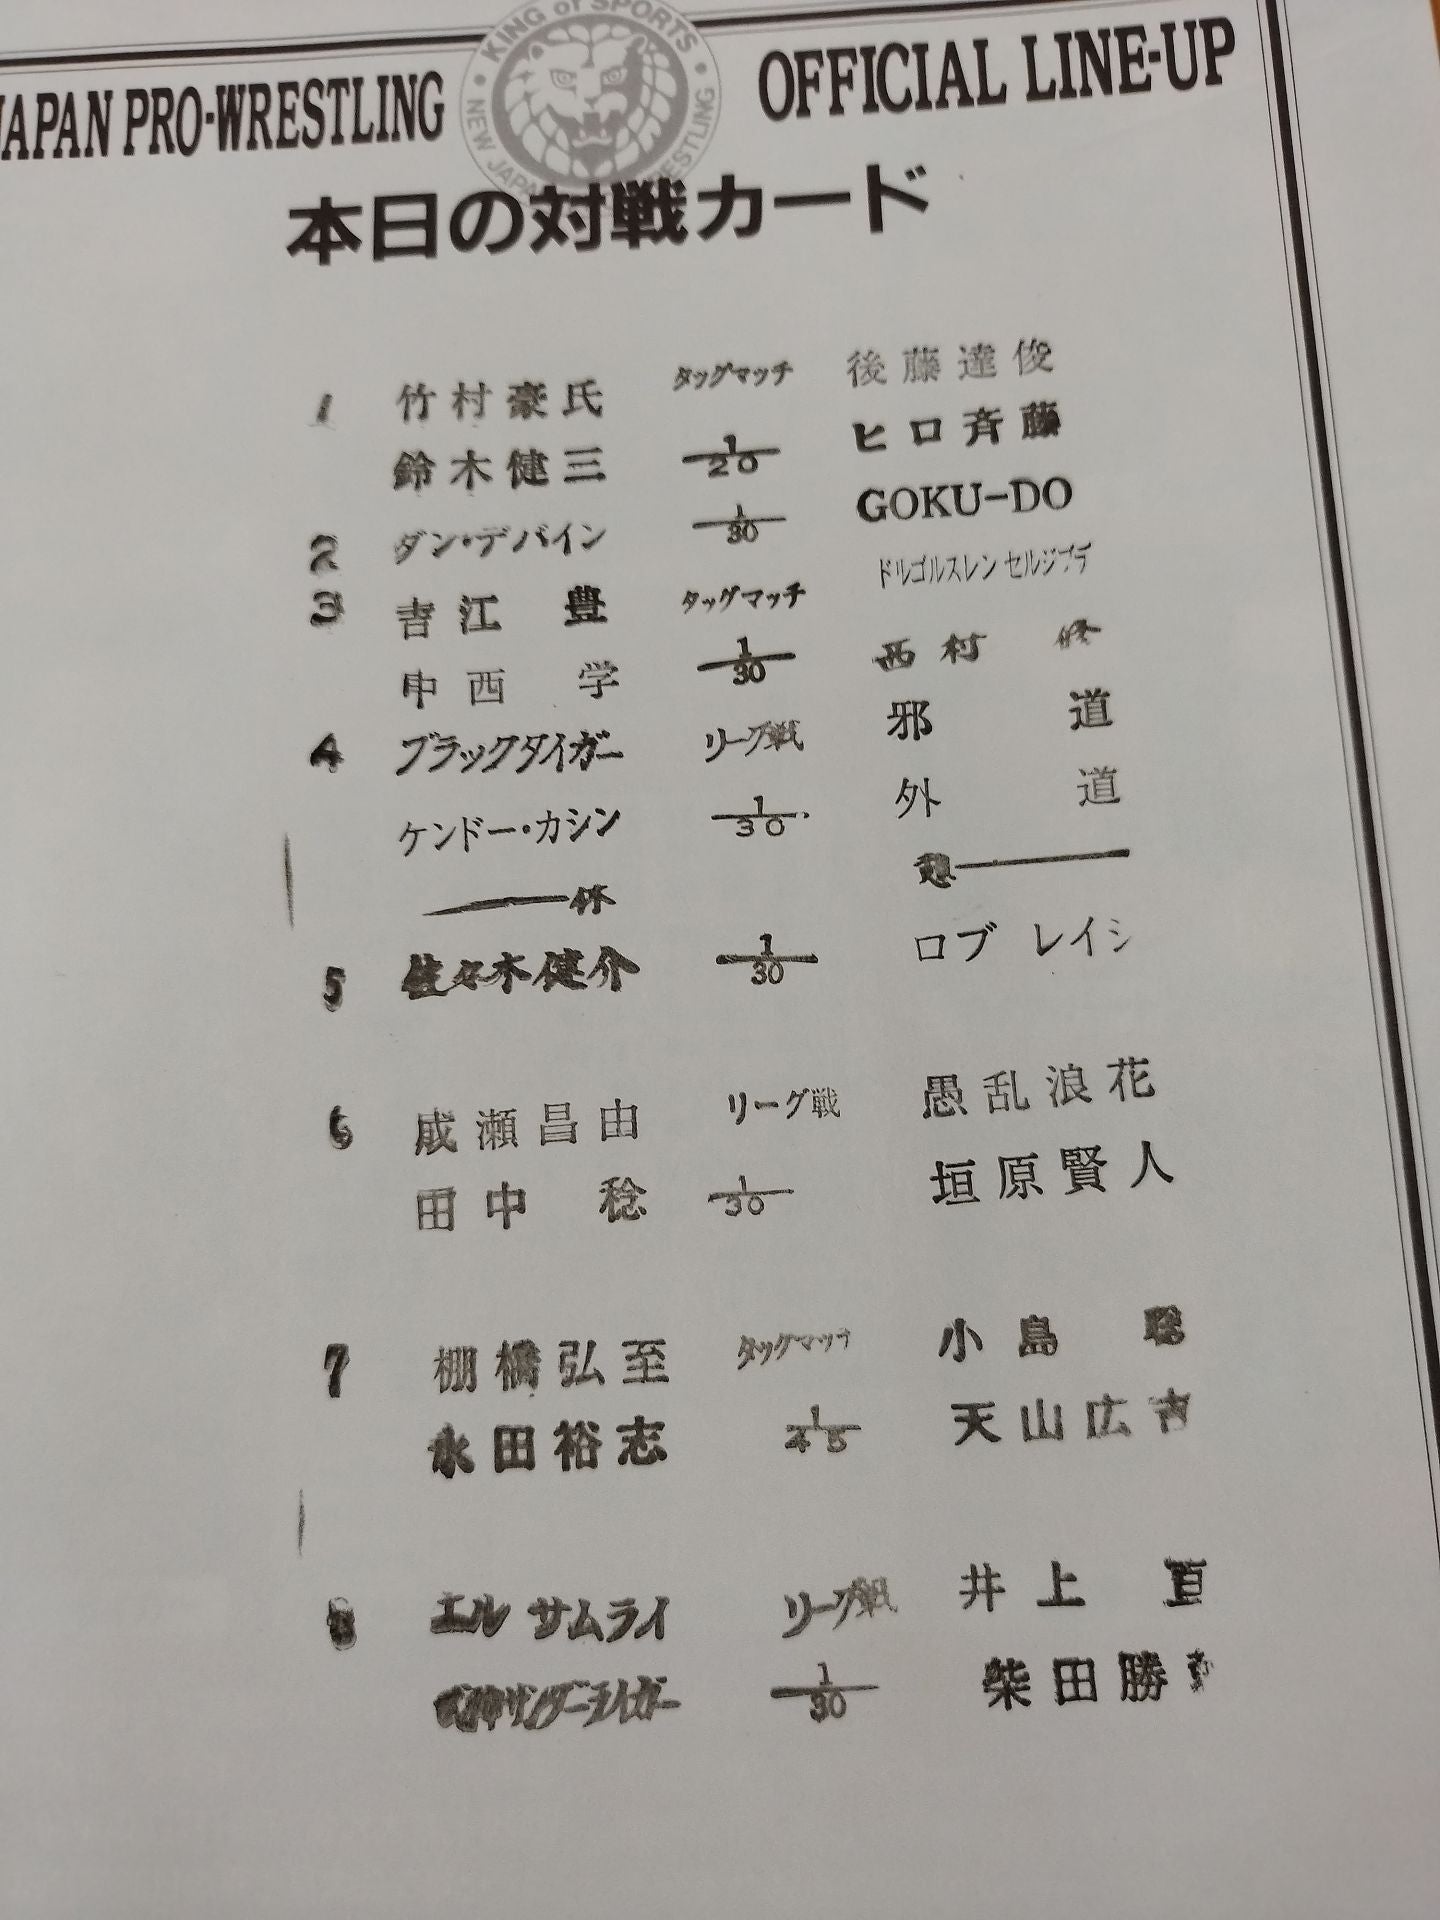 JAPAN PRO-WRESTLING
KING OF SPORTS
NEW JAPAN WRESTLING
OFFICIAL LINE-UP
本日の対戦カード
1 竹村豪氏 タッグマッチ 後藤達俊
鈴木健三 1/20 ヒロ斉藤
2 ダン・デバイン 1/30 GOKU-DO
3 吉江 豊 タッグマッチ ドルゴルスレン セルジブデ
中西 学 1/30 西村 修
4 ブラックタイガー リーグ戦 邪道
ケンドー・カシン 1/30 外道
休 憩
5 佐々木健介 1/30 ロブ レイジ
6 成瀬昌由 リーグ戦 愚乱浪花
田中 稔 1/30 垣原賢人
7 棚橋弘至 タッグマッチ 小島 聡
永田裕志 1/45 天山広吉
8 エル サムライ リーグ戦 井上 亘
獣神サンダーライガー 1/30 柴田勝